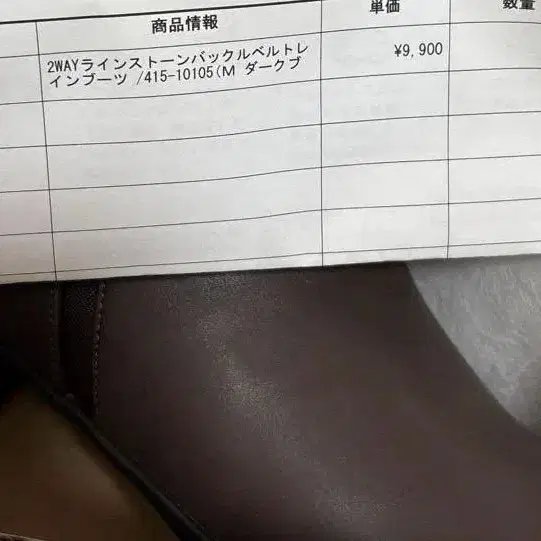 商品情報
単価
数量
2WAYラインストーンバックルベルトレ
インブーツ /415-10105(M ダークブ
¥9,900